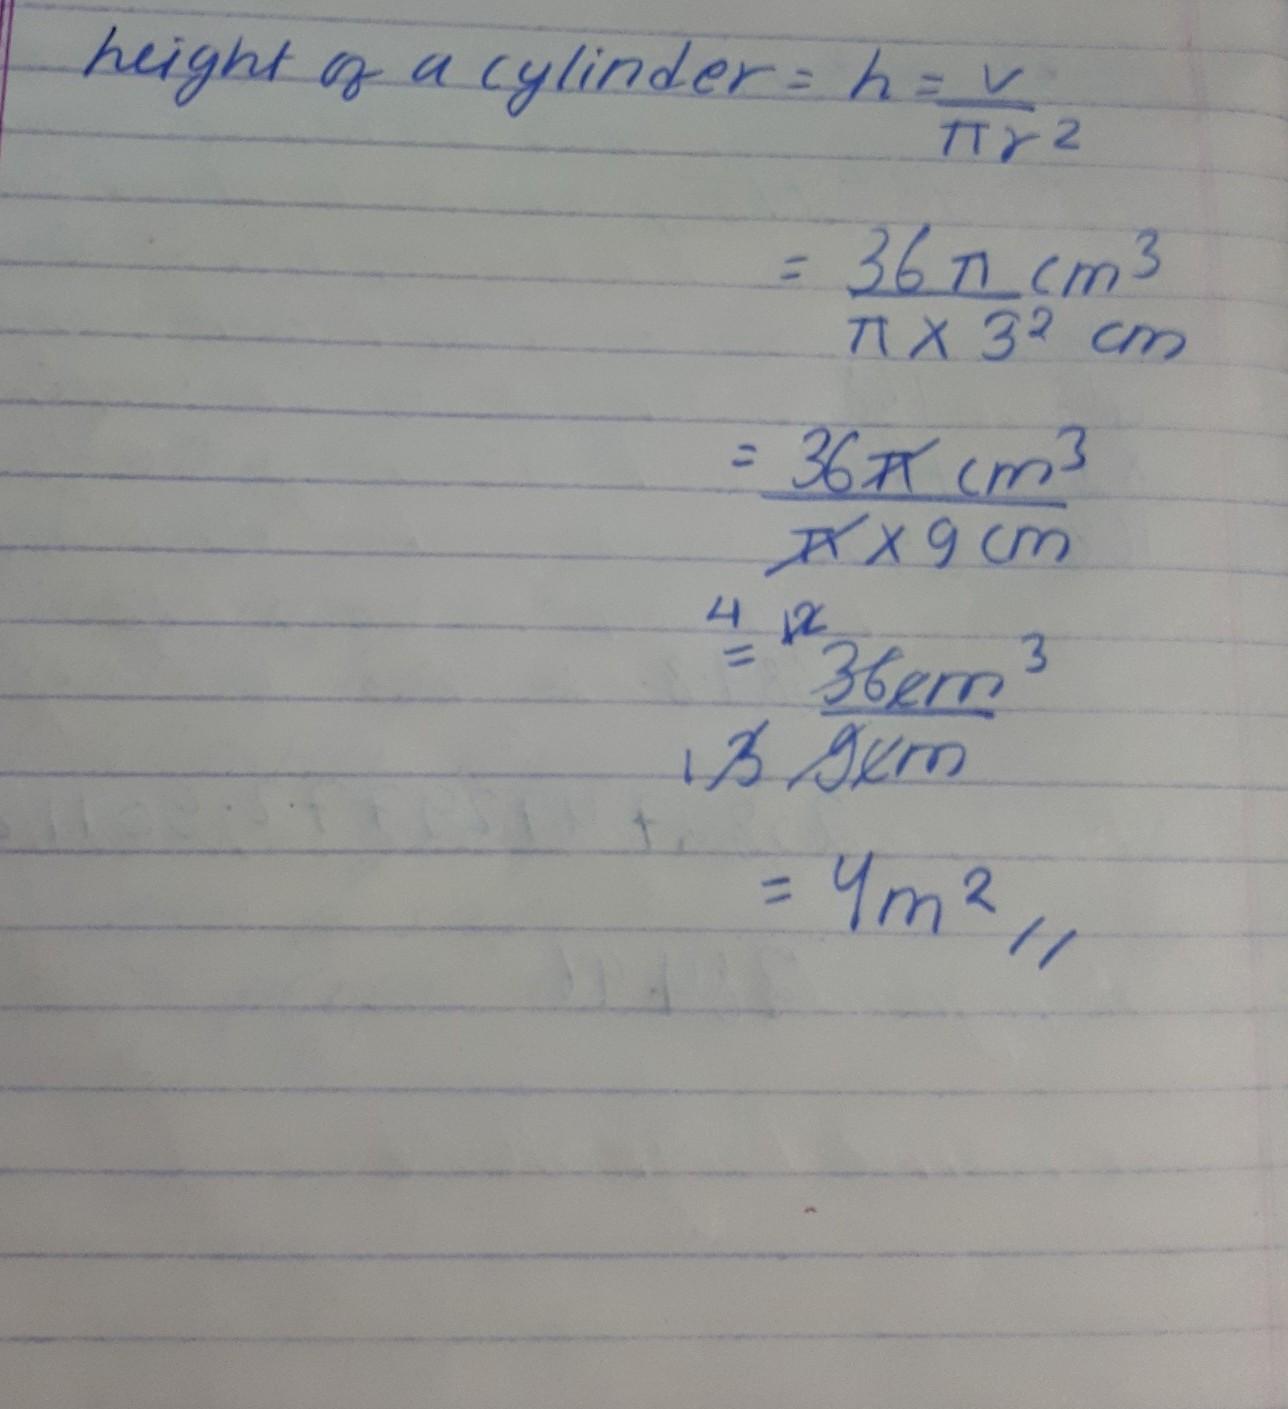 height of a cylinder = h = v
πr2
= 36π cm3
π x 32 cm
= 36π cm3
π x 9 cm
4 12
= 36cm3
1 3 9cm
= 4m2 //